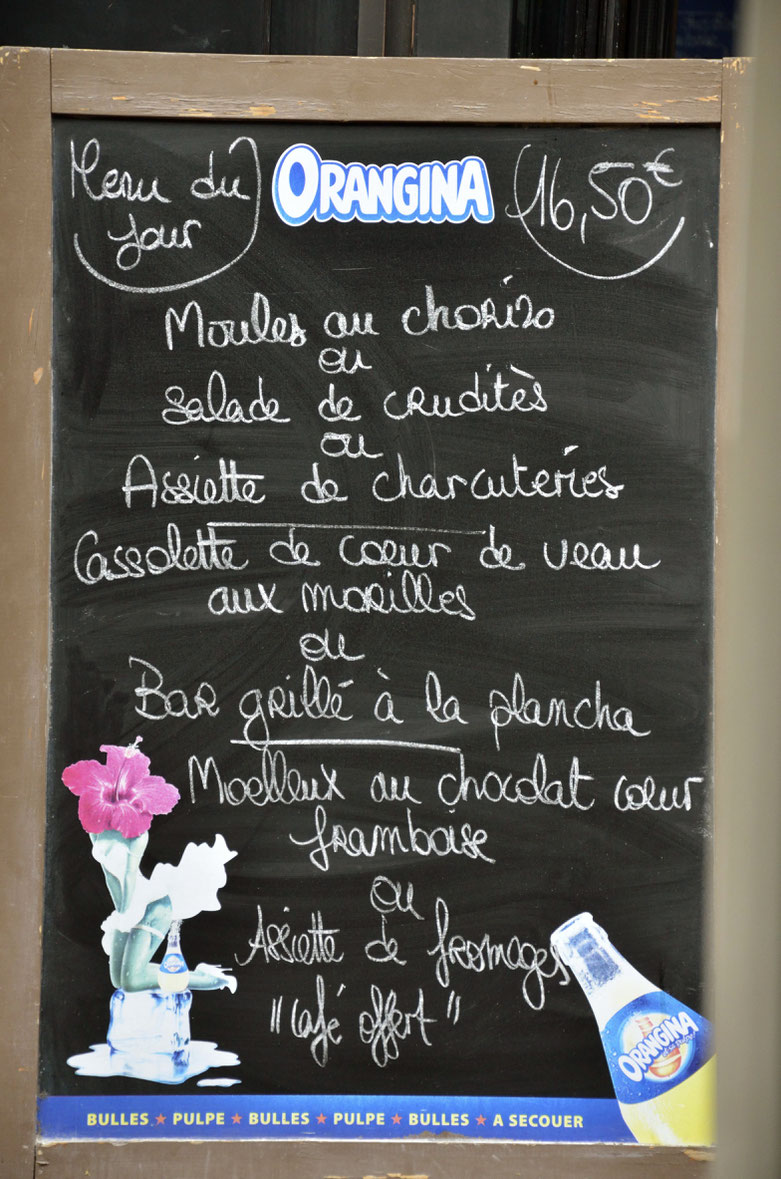 Menu du jour
ORANGINA
16,50€
Moules au chorizo
ou
salade de cruditès
ou
Assiette de charcuteries
Cassolette de coeur de veau
aux morilles
ou
Bar grillé à la plancha
Moelleux au chocolat coeur
framboise
ou
Assiette de fromages
"café offert"
ORANGINA
BULLES ★ PULPE ★ BULLES ★ PULPE ★ BULLES ★ A SECOUER